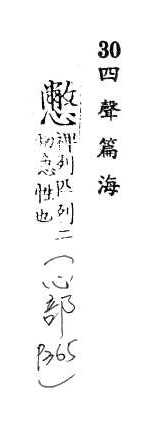 30四聲篇海
憋 裨列匹列二
切急性也
(心部
P.365)